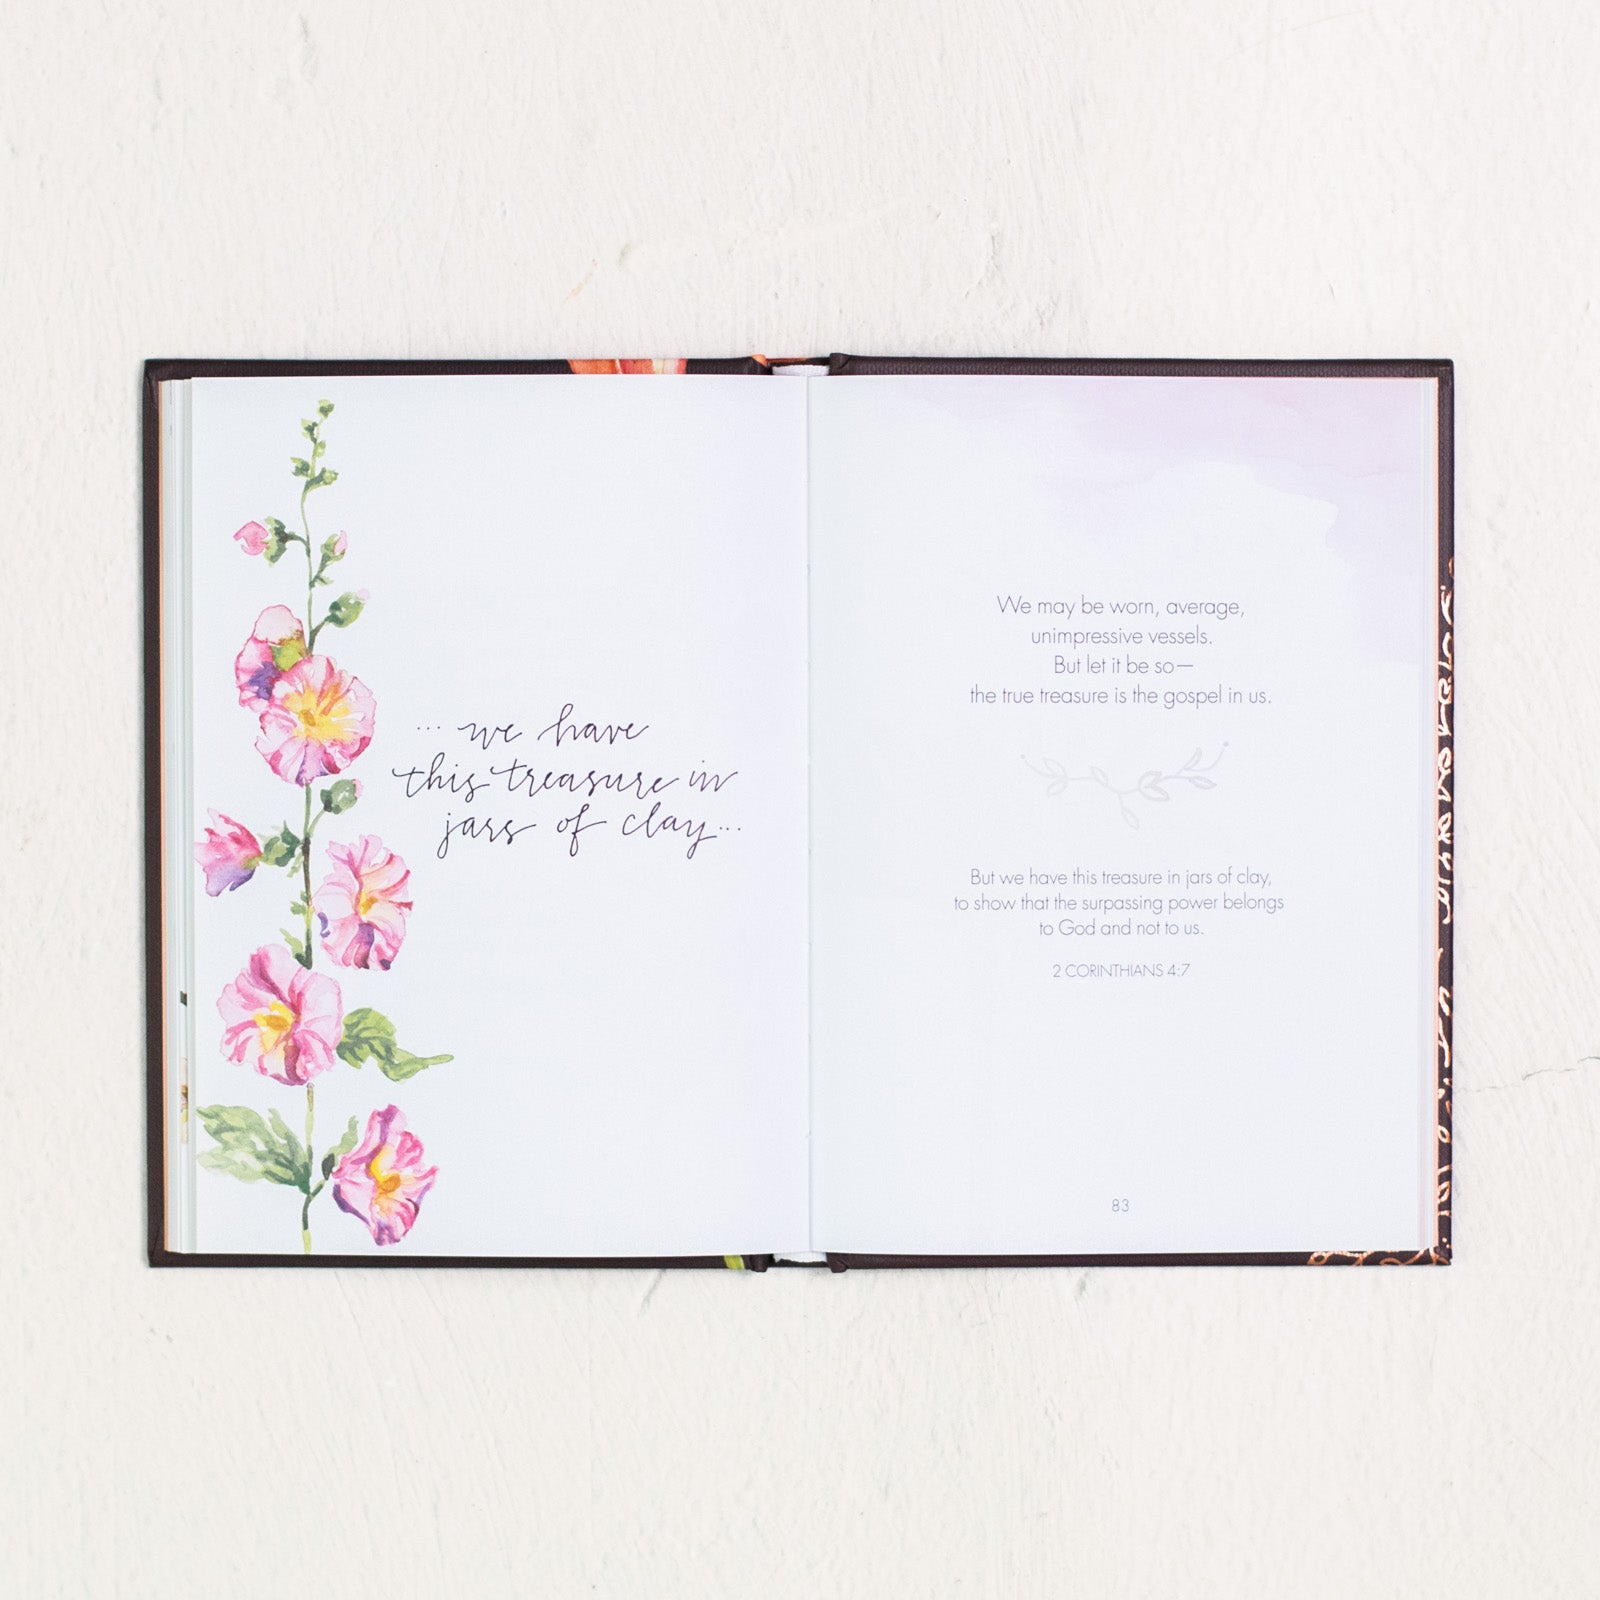 ... we have
this treasure in
jars of clay...
We may be worn, average,
unimpressive vessels.
But let it be so—
the true treasure is the gospel in us.
But we have this treasure in jars of clay,
to show that the surpassing power belongs
to God and not to us.
2 CORINTHIANS 4:7
83